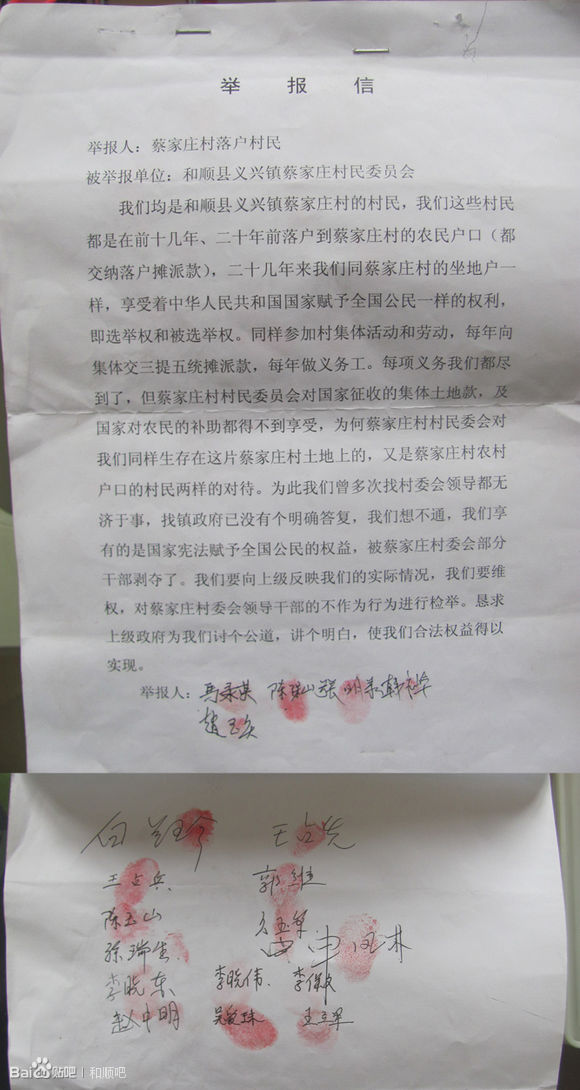 举报信
举报人：蔡家庄村落户村民
被举报单位：和顺县义兴镇蔡家庄村民委员会
我们均是和顺县义兴镇蔡家庄村的村民，我们这些村民
都是在前十几年、二十年前落户到蔡家庄村的农民户口（都
交纳落户摊派款），二十几年来我们同蔡家庄村的坐地户一
样，享受着中华人民共和国国家赋予全国公民一样的权利，
即选举权和被选举权。同样参加村集体活动和劳动，每年向
集体交三提五统摊派款，每年做义务工。每项义务我们都尽
到了，但蔡家庄村村民委员会对国家征收的集体土地款，及
国家对农民的补助都得不到享受，为何蔡家庄村村民委会对
我们同样生存在这片蔡家庄村土地上的，又是蔡家庄村农村
户口的村民两样的对待。为此我们曾多次找村委会领导都无
济于事，找镇政府已没有个明确答复，我们想不通，我们享
有的是国家宪法赋予全国公民的权益，被蔡家庄村委会部分
干部剥夺了。我们要向上级反映我们的实际情况，我们要维
权，对蔡家庄村委会领导干部的不作为行为进行检举。恳求
上级政府为我们讨个公道，讲个明白，使我们合法权益得以
实现。
举报人：
王占先
王占兵 郭维
陈玉山
徐瑞生
李晓东 李晓伟
赵中明
Baidu贴吧 | 和顺吧